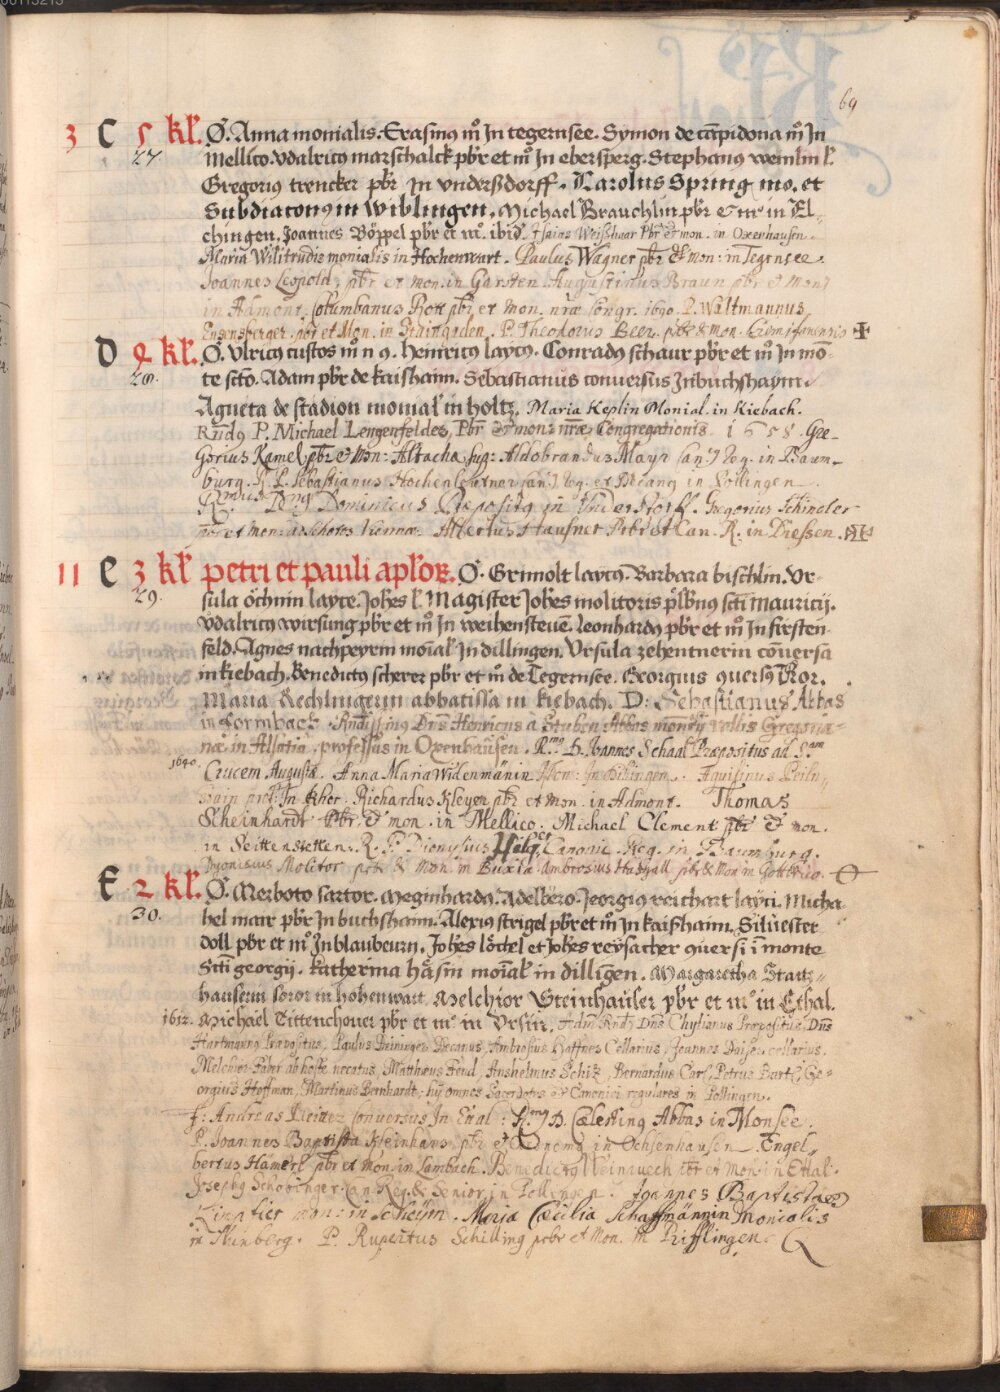 69
3 C 5 kl. O. Anna monialis. Erasmus m̊ In tegernsee. Symon de cāpidona m̊ In
27. Mellico. Vdalricus marschalck pbr et m̊ In ebersperg. Stephanus wemlin l.
Gregorius trencker pbr In vnderßdorff. Karolus Spring mo. et
Subdiaconus in Wiblingen. Michael Brauchlin pbr & mo in El-
chingen. Joannes Böppel pbr et mo. ibid. Isaias Weißhaar Pbr & mon. in Oxenhausen.
Maria Wiltrudis monialis in Hochenwart. Paulus Wagner pbr & mon: in Tegrnsee.
Joannes Leopold, pbr et mon. in Garsten. Augustinus Braun pbr & mon:
in Admont. Columbanus Rott pbr et mon. nrae congr. 1690. P. Waltmannus
Ensensperger. pbr et Mon. in P. Theodorus Beer. pbr & mon. Cremifanensis
D 4 kl. O. Vlricus custos m̊ n 9. Heinricus laycus. Conradus schaur pbr et m̊ In mō-
28. te scto. Adam pbr de kaishaim. Sebastianus conuersus In buchshaym.
Agneta de stadion monial in holtz. Maria Keplin Monial. in Kiebach.
Rndus P. Michael Lengenfelder, Pbr & mon: nrae Congregationis. 1658. Gre-
gorius Kamel pbr & Mon: Altachae sup: Aldobrandus Mayr Can: Reg. in Baum-
burg. R. P. Sebastianus Can: Reg. et Decang in Pollingen.
Dominicus Praepositus in Vnderstorff. Gregorius Schindler
pbr et mon: ad Schotos Viennae. Albertus Hausner Pr̄br et Can. R. in Diessen.
11 E 3 kl Petri et pauli aplor. O. Grimolt laycus. Barbara bischlin. Vr-
29. sula öchnin layce. Johes l. Magister Johes molitoris plbnus scti mauricij.
Vdalricus wirsung pbr et m̊ In weihensteuē. Leonhardus pbr et m̊ In firsten-
feld. Agnes nachpeyrin moīal In dillingen. Vrsula zehentnerin cōuersa
in kiebach. Benedictus scherer pbr et m̊ de Tegernsee. Georgius
Maria Rechlingerin abbatissa in kiebach. D. Sebastianus Abbas
in Formbach. Henricus a Stuben Abbas montis vallis Gregoria-
nae in Alsatia, professus in Oxenhausen. R.mo D. Joannes Schaal Praepositus ad S.am
1640. Crucem Augustae. Anna Maria Widenmänin Mon: In Dillingen. Aquilinus
Richardus Kleyer pbr et mon. in Admont. Thomas
Scheinhardt Pbr. & mon. in Mellico. Michael Clement pbr & mon.
in Seittenstetten. R. P. Dionysius Canonic. Reg. in Baumburg.
Dyonisius Molitor pbr & mon. in Buxla. Ambrosius pbr & Mon in Gottwico.
F 2 kl. O. Merboto sartor. Meginhardus. Adelbero. Jeorgius reichart layci. Micha
30. hel mair pbr In buchshaim. Alexius strigel pbr et m̊ In kaishaim. Siluester
doll pbr et m̊ In blaubeurn. Johes löchel et Johes reysacher in monte
Scti georgij. Katherina häsin moīal in dillingen. Margaretha Staitz-
hauserin soror in hohenwart. Melchior Steinhauser pbr et mo in Ethal.
1612. Michael Tittenchouer pbr et mo in Vrsin. Chylianus Praepositus, Dns
Hartmannus Praepositus, Paulus Preininger Decanus, Ambrosius Haffner Cellarius, Joannes Daiser cellarius.
Melchior Fabri ab hoste necatus, Matthaeus Feud, Anshelmus Schiz, Bernardus Curs, Petrus Bartl, Ge-
orgius Hoffman, Martinus Bernhardt: hij omnes Sacerdotes & Canonici regulares in Pollingen.
f: Andreas Conuersus In Etal: R.mus D. Caelesting Abbas in Monsee.
P. Joannes Baptista Kleinhans pbr et Oeconomg in Ochsenhausen. Engel-
bertus Hämerl pbr et mon. in Lambach. Benedictus Weinzuech pbr et Mon: in Ettal.
Josephg Schoninger Can. Reg. & Senior in Pollingen. Joannes Baptista
mon: in Scheyrn. Maria Caecilia Schaffmännin Monialis
P. Rupertus Schilling prbr et Mon. in